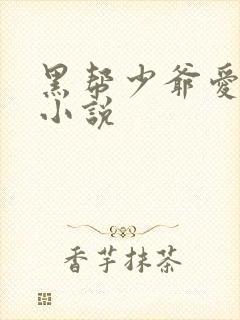 黑帮少爷爱
小說
香芋抹茶